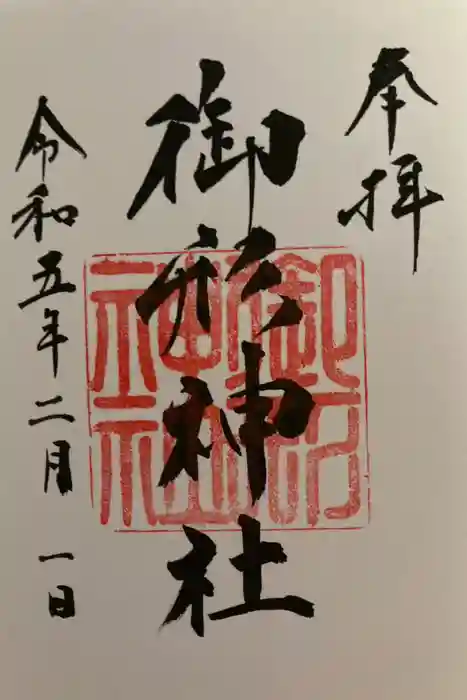 奉拝
御形神社
令和五年二月一日
御形神社